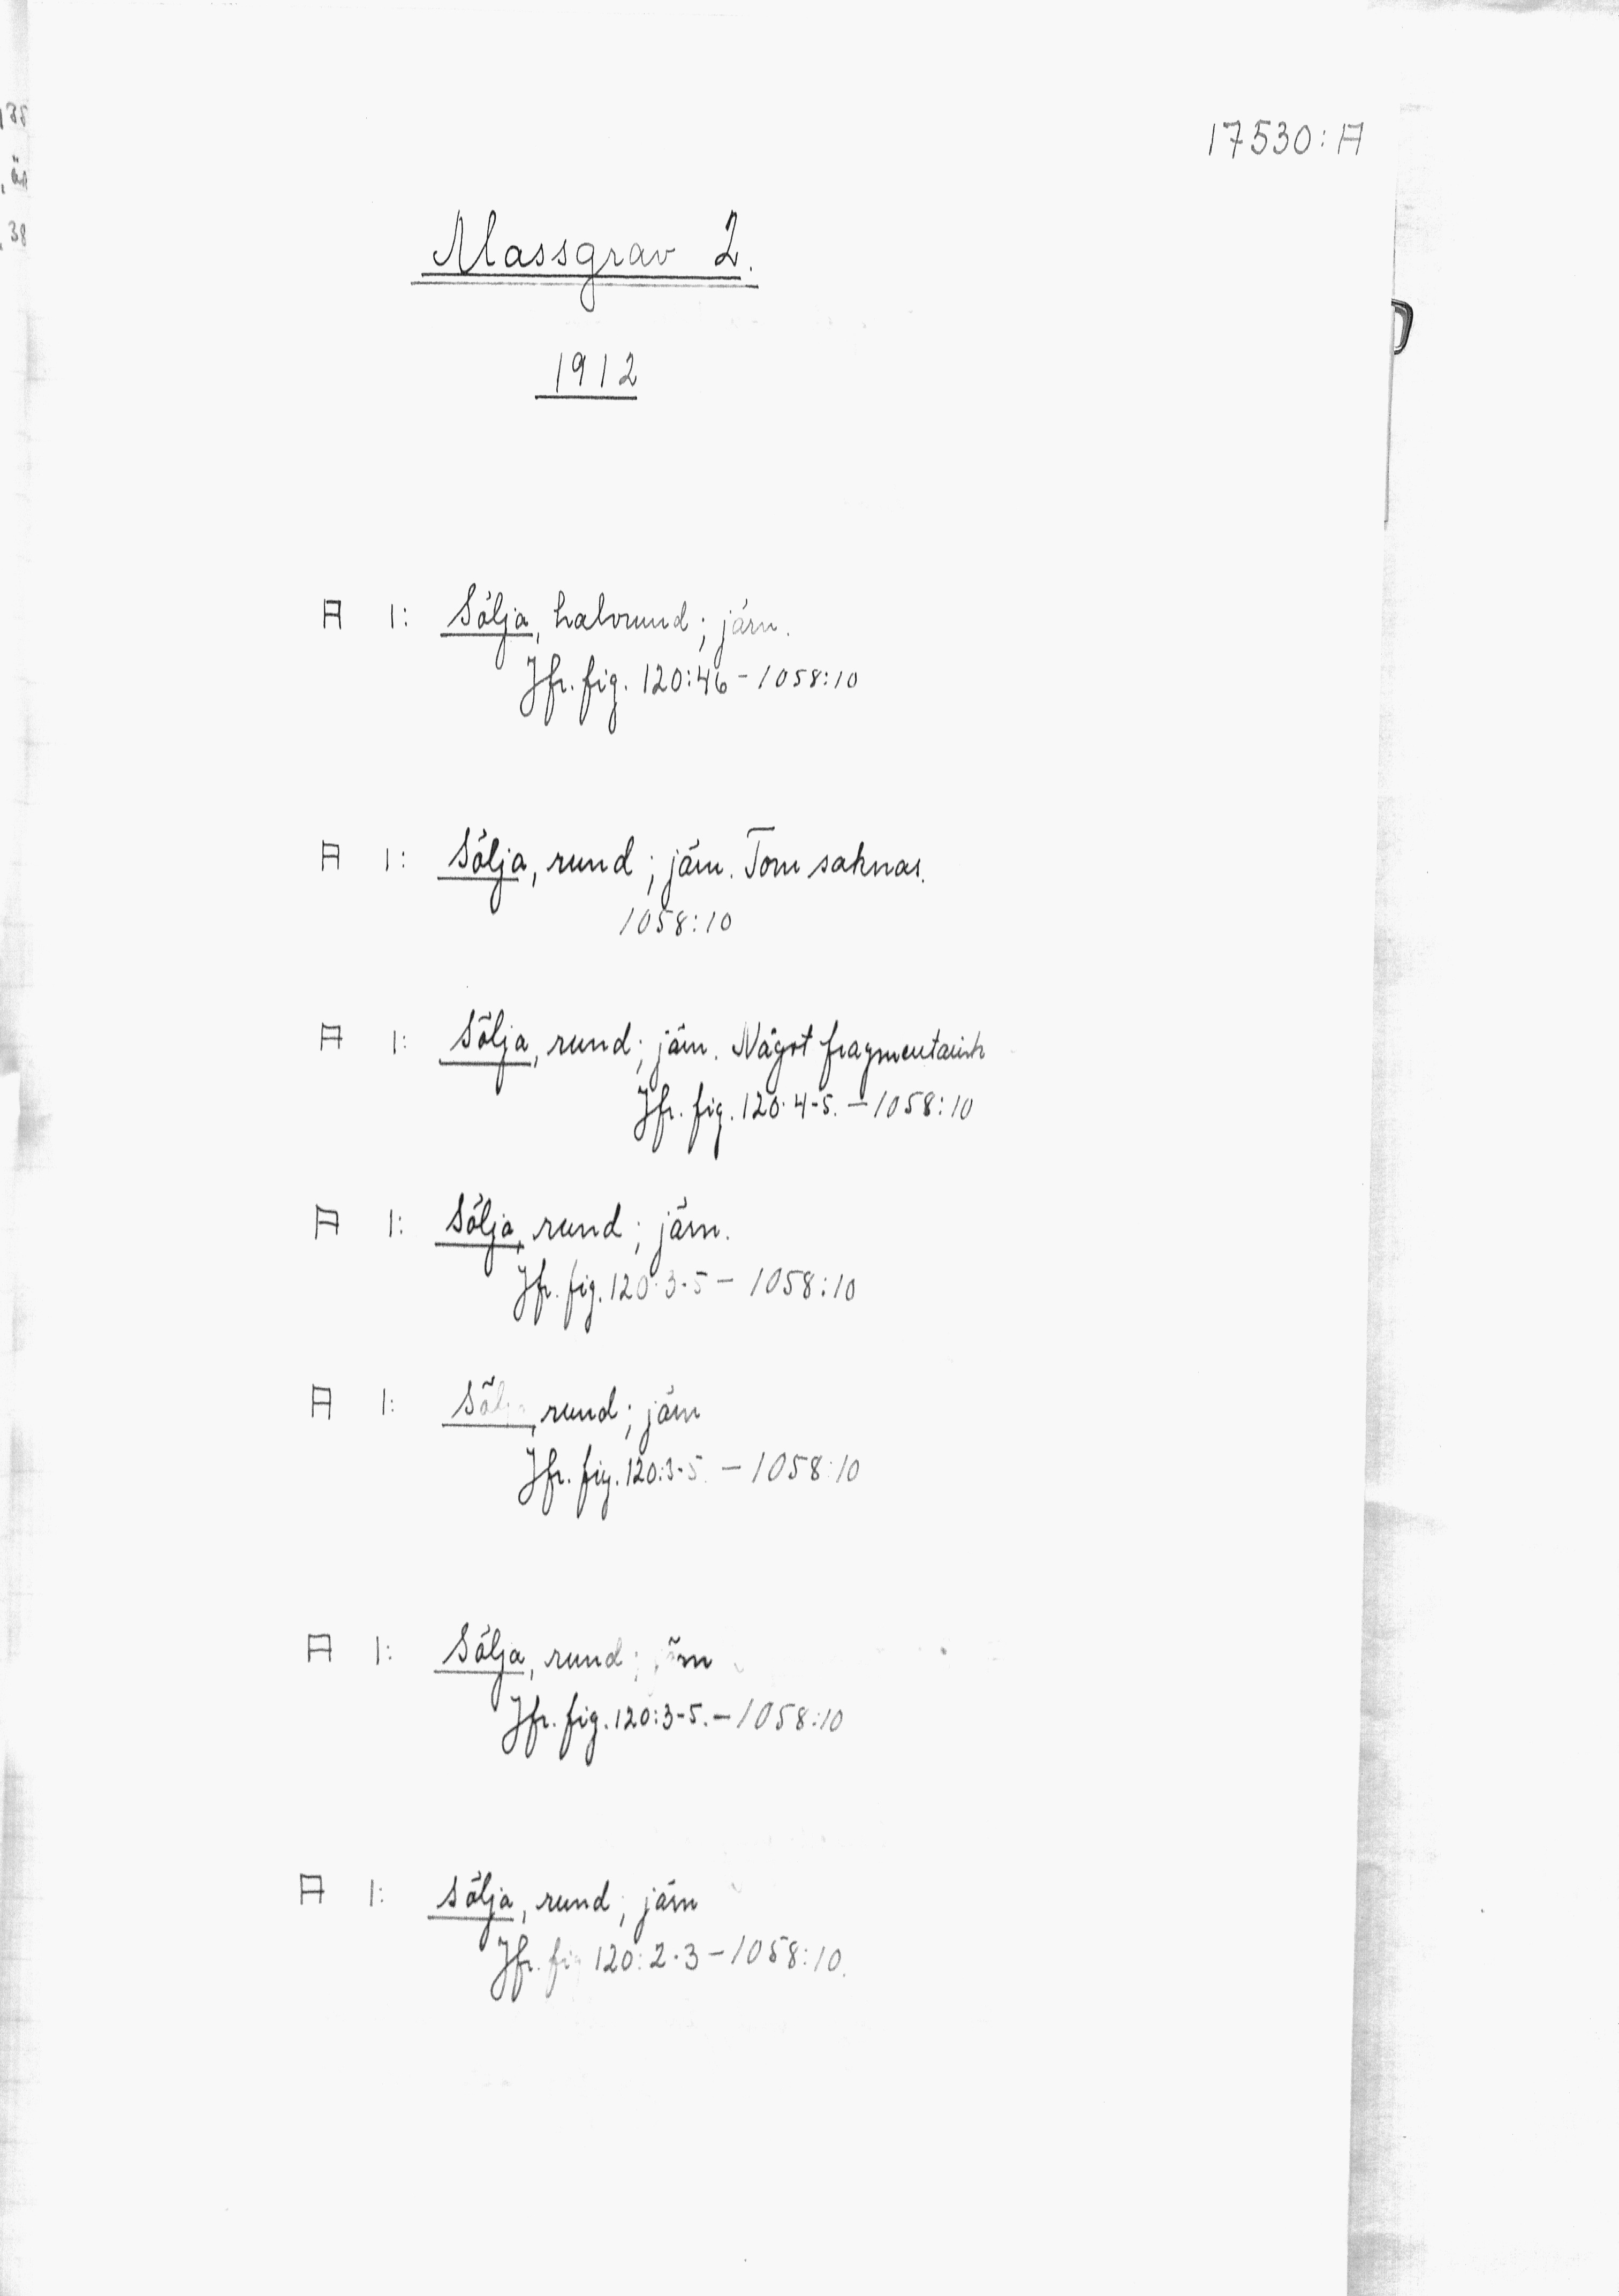 17530:A
Massgrav 2.
1912
A 1: Sölja, halvrund; järn.
Jfr. fig. 120:46 - 1058:10
A 1: Sölja, rund; järn. Torn saknas.
1058:10
A 1: Sölja, rund; järn. Något fragmentarisk
Jfr. fig. 120:4-5. - 1058:10
A 1: Sölja, rund; järn.
Jfr. fig. 120:3-5 - 1058:10
A 1: Sölja, rund; järn
Jfr. fig. 120:3-5. - 1058:10
A 1: Sölja, rund; järn
Jfr. fig. 120:3-5. - 1058:10
A 1: Sölja, rund; järn
Jfr. fig 120:2-3 - 1058:10.